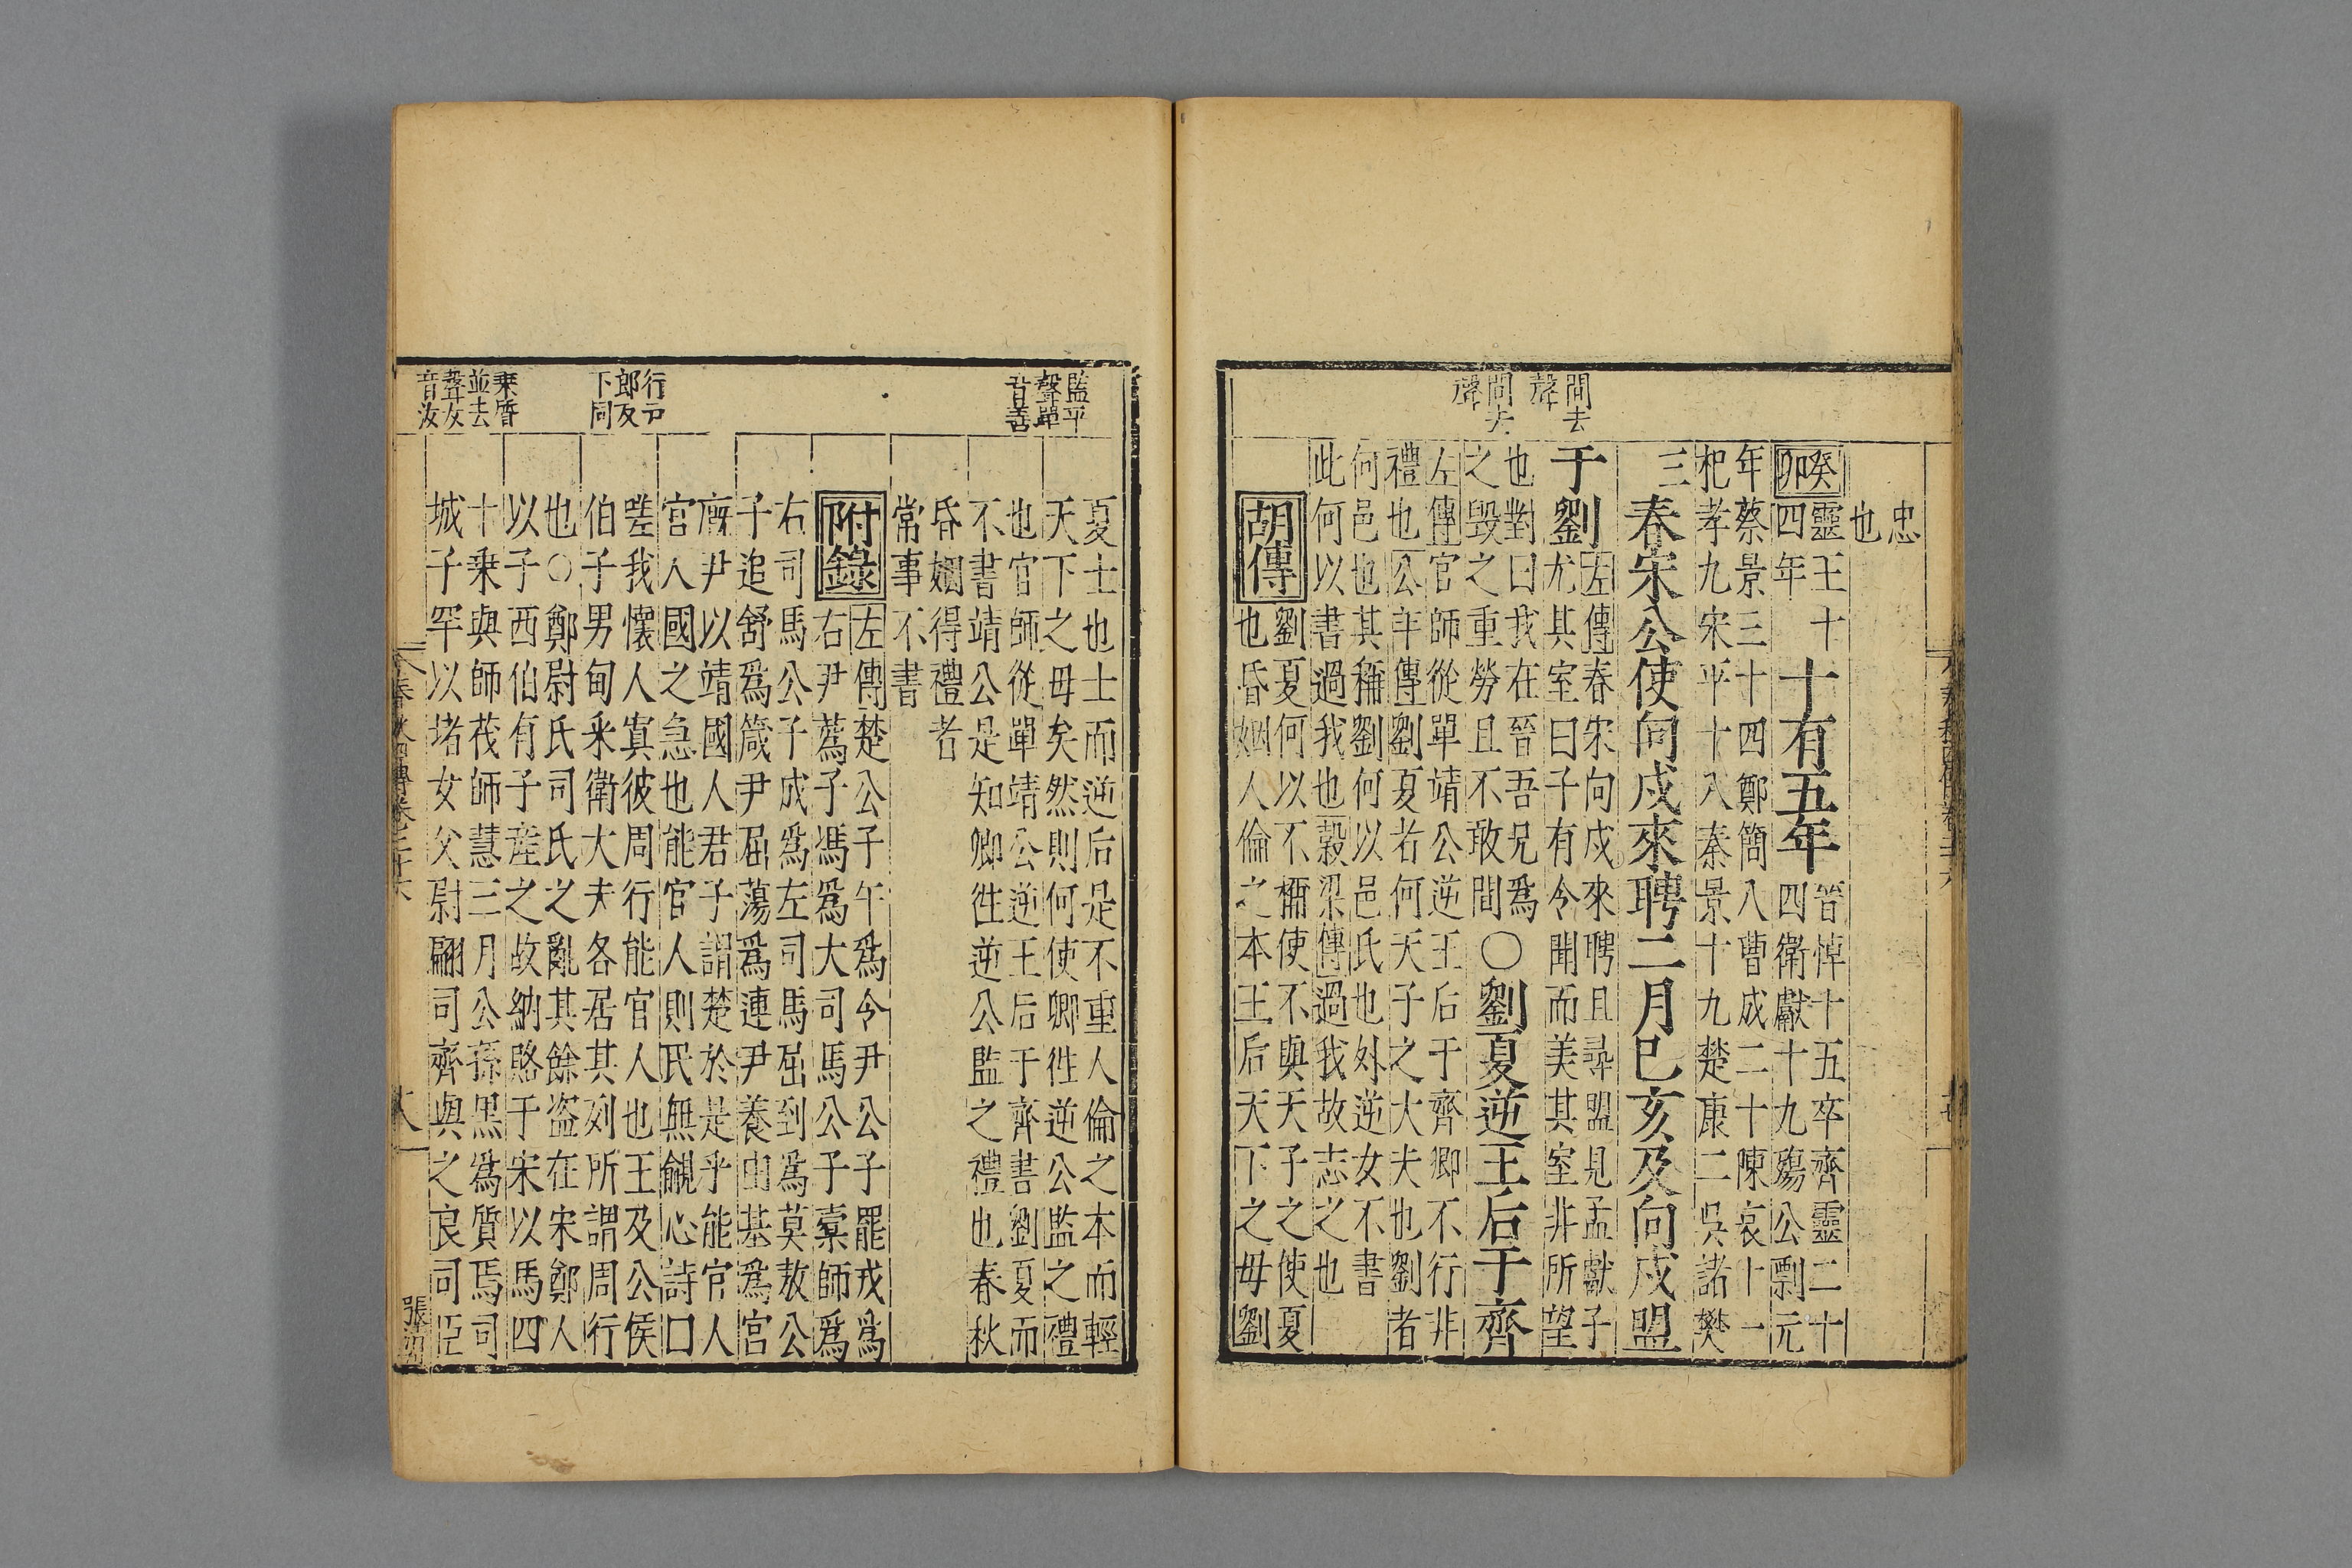 間去
聲
間去
聲
忠
也
癸卯
靈王十
四年
十有五年
晉悼十五卒齊靈二十
四衛獻十九殤公剽元
年蔡景三十四鄭簡八曹成二十陳哀十一
杞孝九宋平十八秦景十九楚康二吳諸樊
三
春宋公使向戌來聘二月已亥及向戌盟
于劉
左傳春宋向戌來聘且尋盟見孟獻子
尤其室曰子有令聞而美其室非所望
也對曰我在晉吾兄爲
之毀之重勞且不敢間
〇劉夏逆王后于齊
左傳官師從單靖公逆王后于齊卿不行非
禮也公羊傳劉夏者何天子之大夫也劉者
何邑也其稱劉何以邑氏也外逆女不書
此何以書過我也穀梁傳過我故志之也
胡傳
劉夏何以不稱使不與天子之使夏
也昏姻人倫之本王后天下之母劉
監平
聲單
音善
行戸
郎反
下同
乘膺
並去
聲女
音汝
夏士也士而逆后是不重人倫之本而輕
天下之母矣然則何使卿徃逆公監之禮
也官師從單靖公逆王后于齊書劉夏而
不書靖公是知卿徃逆公監之禮也春秋
昏姻得禮者
常事不書
附錄
左傳楚公子午爲令尹公子罷戎爲
右尹蒍子馮爲大司馬公子槖師爲
右司馬公子成爲左司馬屈到爲莫敖公
子追舒爲箴尹屈蕩爲連尹養由基爲宮
廐尹以靖國人君子謂楚於是乎能官人
官人國之急也能官人則民無覦心詩曰
嗟我懷人寘彼周行能官人也王及公侯
伯子男甸采衛大夫各居其列所謂周行
也〇鄭尉氏司氏之亂其餘盜在宋鄭人
以子西伯有子產之故納賂于宋以馬四
十乘與師茷師慧三月公孫黑爲質焉司
城子罕以堵女父尉翩司齊與之良司臣